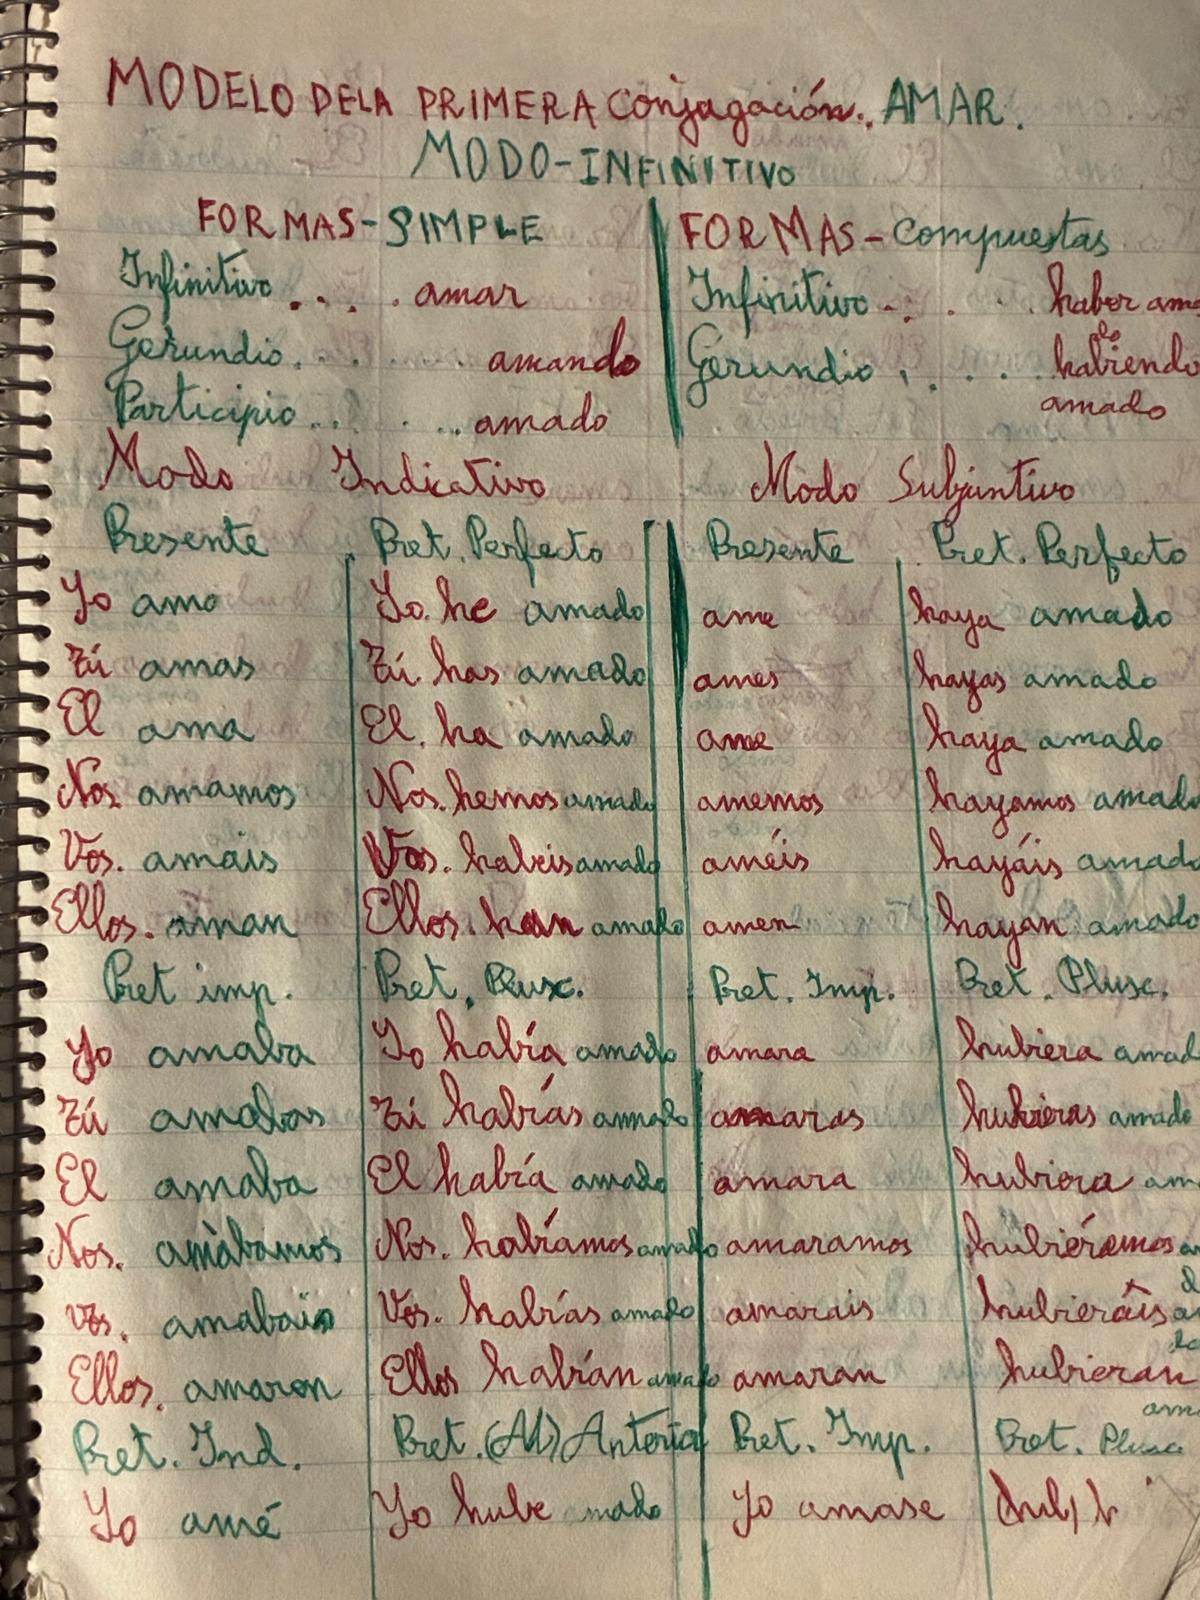 MODELO DELA PRIMERA Conjagación. AMAR.
MODO-INFINITIVO
FORMAS-SIMPLE FORMAS-Compuestas
Infinitivo .... amar Infinitivo .... haber ama
do
Gerundio ..... amando Gerundio .... habiendo
amado
Participio ...... amado
Modo Indicativo Modo Subjuntivo
Presente Pret. Perfecto Presente Pret. Perfecto
Yo amo Yo. he amado ame haya amado
Tú amas Tú. has amado ames hayas amado
El ama El. ha amado ame haya amado
Nos. amamos Nos. hemos amado amemos hayamos amado
Vos. amais Vos. habeis amado améis hayáis amado
Ellos. aman Ellos. han amado amen hayan amado
Pret imp. Pret. Plusc. Pret. Imp. Pret. Plusc.
Yo amaba Yo había amado amara hubiera amad
Tú amabas Tú habías amado amaras hubieras amado
El amaba El había amado amara hubiera am
Nos. amàbamos Nos. habíamos amado amaramos hubiéramos am
Vos. amabais Vos. habías amado amarais hubierâis a
do
Ellos. amaron Ellos habían amado amaran hubieran
ama
Pret. Ind. Pret. (Al) Anteria Pret. Imp. Pret. Plusc
Yo amé Yo hube mado Yo amase